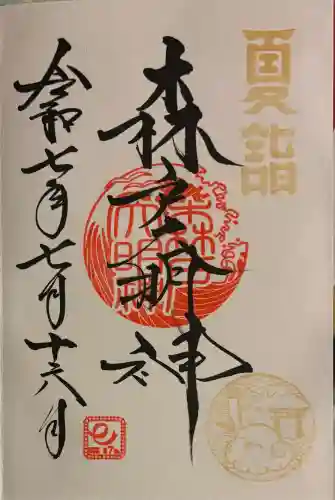 夏詣
森戸大明神
令和七年七月十六日